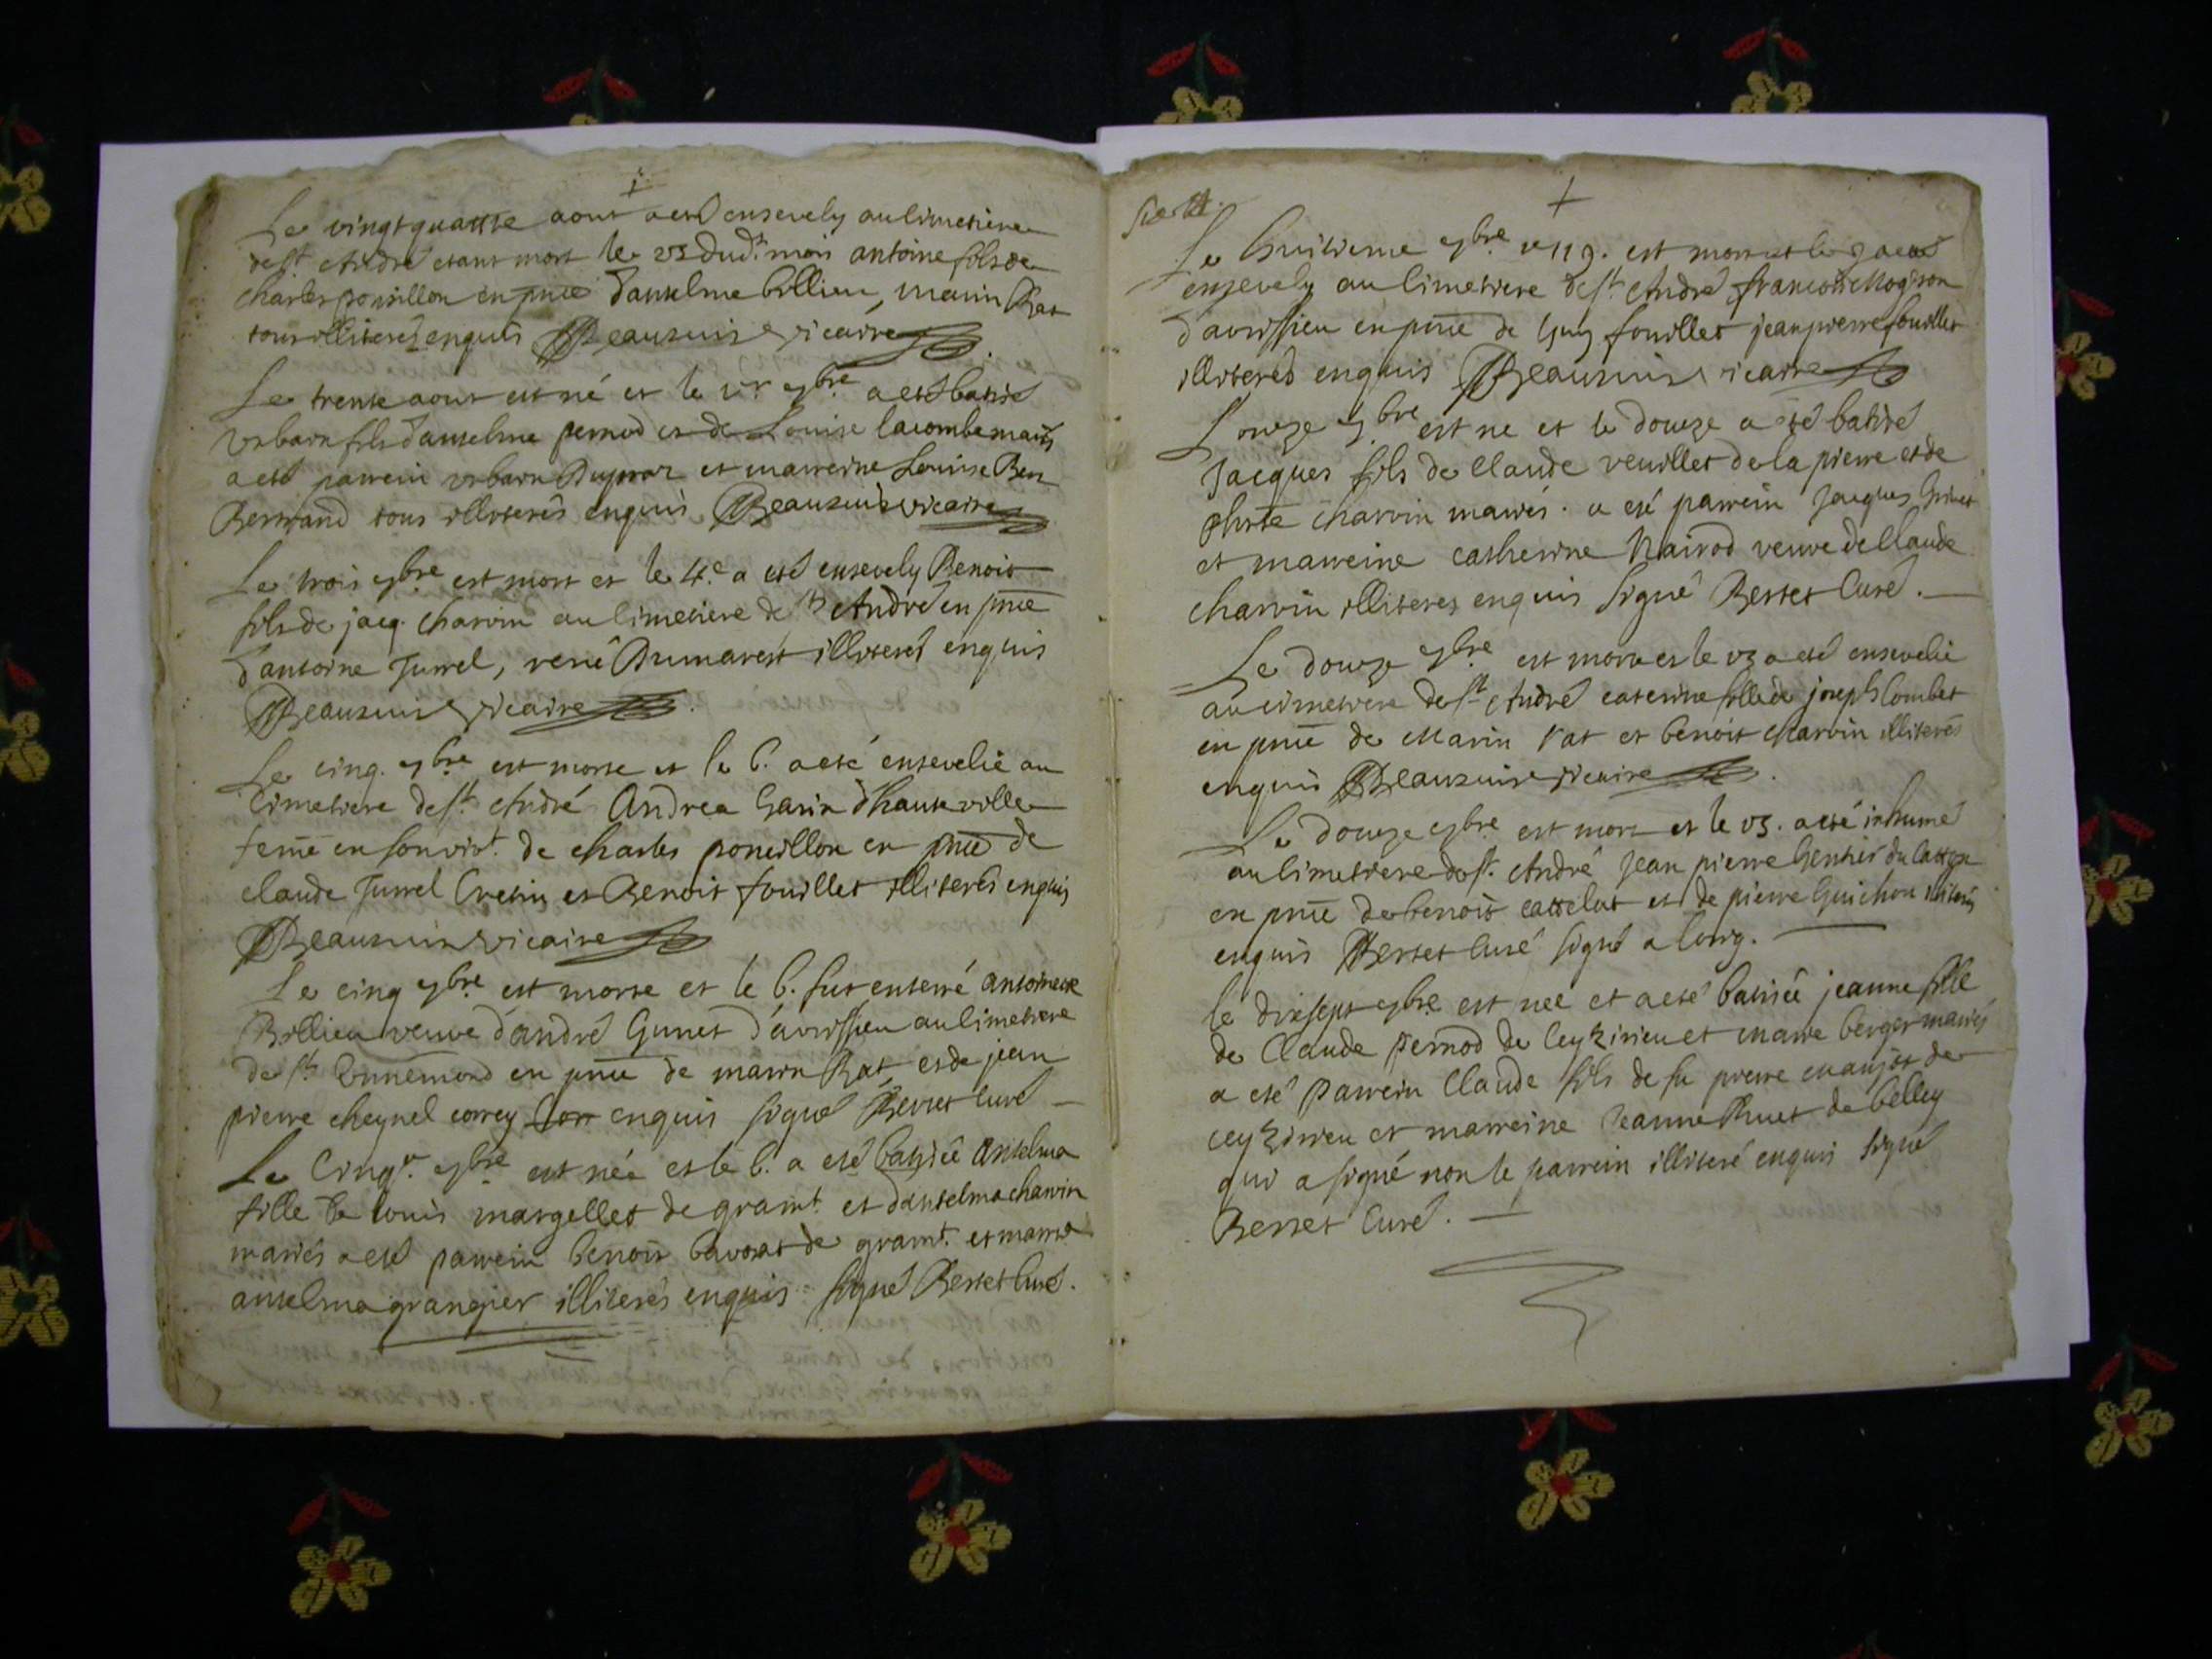 Le vingt quattre aout a esté ensevely au cimetiere
de st. André etant mort le 23 dud.t mois antoine fils de
charles ponsillon en pnce d'anselme billieu, marin Rat
tous illiterés enquis Beauzuis vicaire
Le trente aout est né et le 1.er 7bre a esté batisé
vrbain fils d'anselme pernod et de Louise lacombe mariés
a esté parrein vrbain Dupraz et marreine Louise Ber
Bertrand tous illiterés enquis Beauzuis vicaire
Le trois 7bre est mort et le 4.e a esté ensevely Benoit
fils de jacq. charvin au cimetiere de st André en pnce
d'antoine Jurrel, rené Dumarest illiterés enquis
Beauzuis vicaire
Le cinq. 7bre est morte et le 6. a esté ensevelie au
Cimetiere de st. André Andrea Garin d'hauteville
feme en son viv.t de charles ponsillon en pnce de
claude Jurrel Cretin et Benoit fouillet illiterés enquis
Beauzuis vicaire
Le cinq 7bre est morte et le 6. fut enterré antoinette
Billieu veuve d'andré Gunet d'avrissieu au cimetiere
de st. Ennemond en pnce de marin Rat et de jean
pierre cheynel correy enquis signé Berret curé
Le Cinq.e 7bre est née et le 6. a esté batisée anselma
fille de louis margellet de gram.t et d'anselma charvin
mariés a esté parrein benoit bavozat de gram.t et marr.e
anselma grangier illiterés enquis signé Berret curé.
+
Le huitieme 7bre 1719. est mort et le 9 a esté
ensevely au cimetiere de st. André francois Mogiron
d'avrissieu en pnce de Guy fouillet jean pierre fouillet
illiterés enquis Beauzuis vicaire
L'onze 7bre est ne et le douze a esté batisé
Jacques fils de Claude veuillet de la pierre et de
charvin mariés. a esté parrein Jacques Grinet
et marreine catherine Nairod veuve de Claude
charvin illiteres enquis signé Berret Curé.
Le douze 7bre est morte et le 13 a esté ensevelie
au cimetiere de st. André caterine fille de joseph Combet
en pnce de Marin Rat et benoit charvin illiterés
enquis Beauzuis vicaire
Le douze 7bre est mort et le 13. a esté inhumé
au cimetiere de st. André Jean pierre Gentis du
en pnce de benoit cattelat et de pierre Guichon illiterés
enquis Berret Curé signé a long.
le dixsept 7bre est née et a esté batisée jeanne fille
de Claude pernod de leyzirieu et marie berger mariés
a esté Parrein Claude fils de fu pierre manjot de
ceyzirieu et marreine Jeanne Ruet de belley
qui a signé non le parrein illiteré enquis signé
Berret Curé.